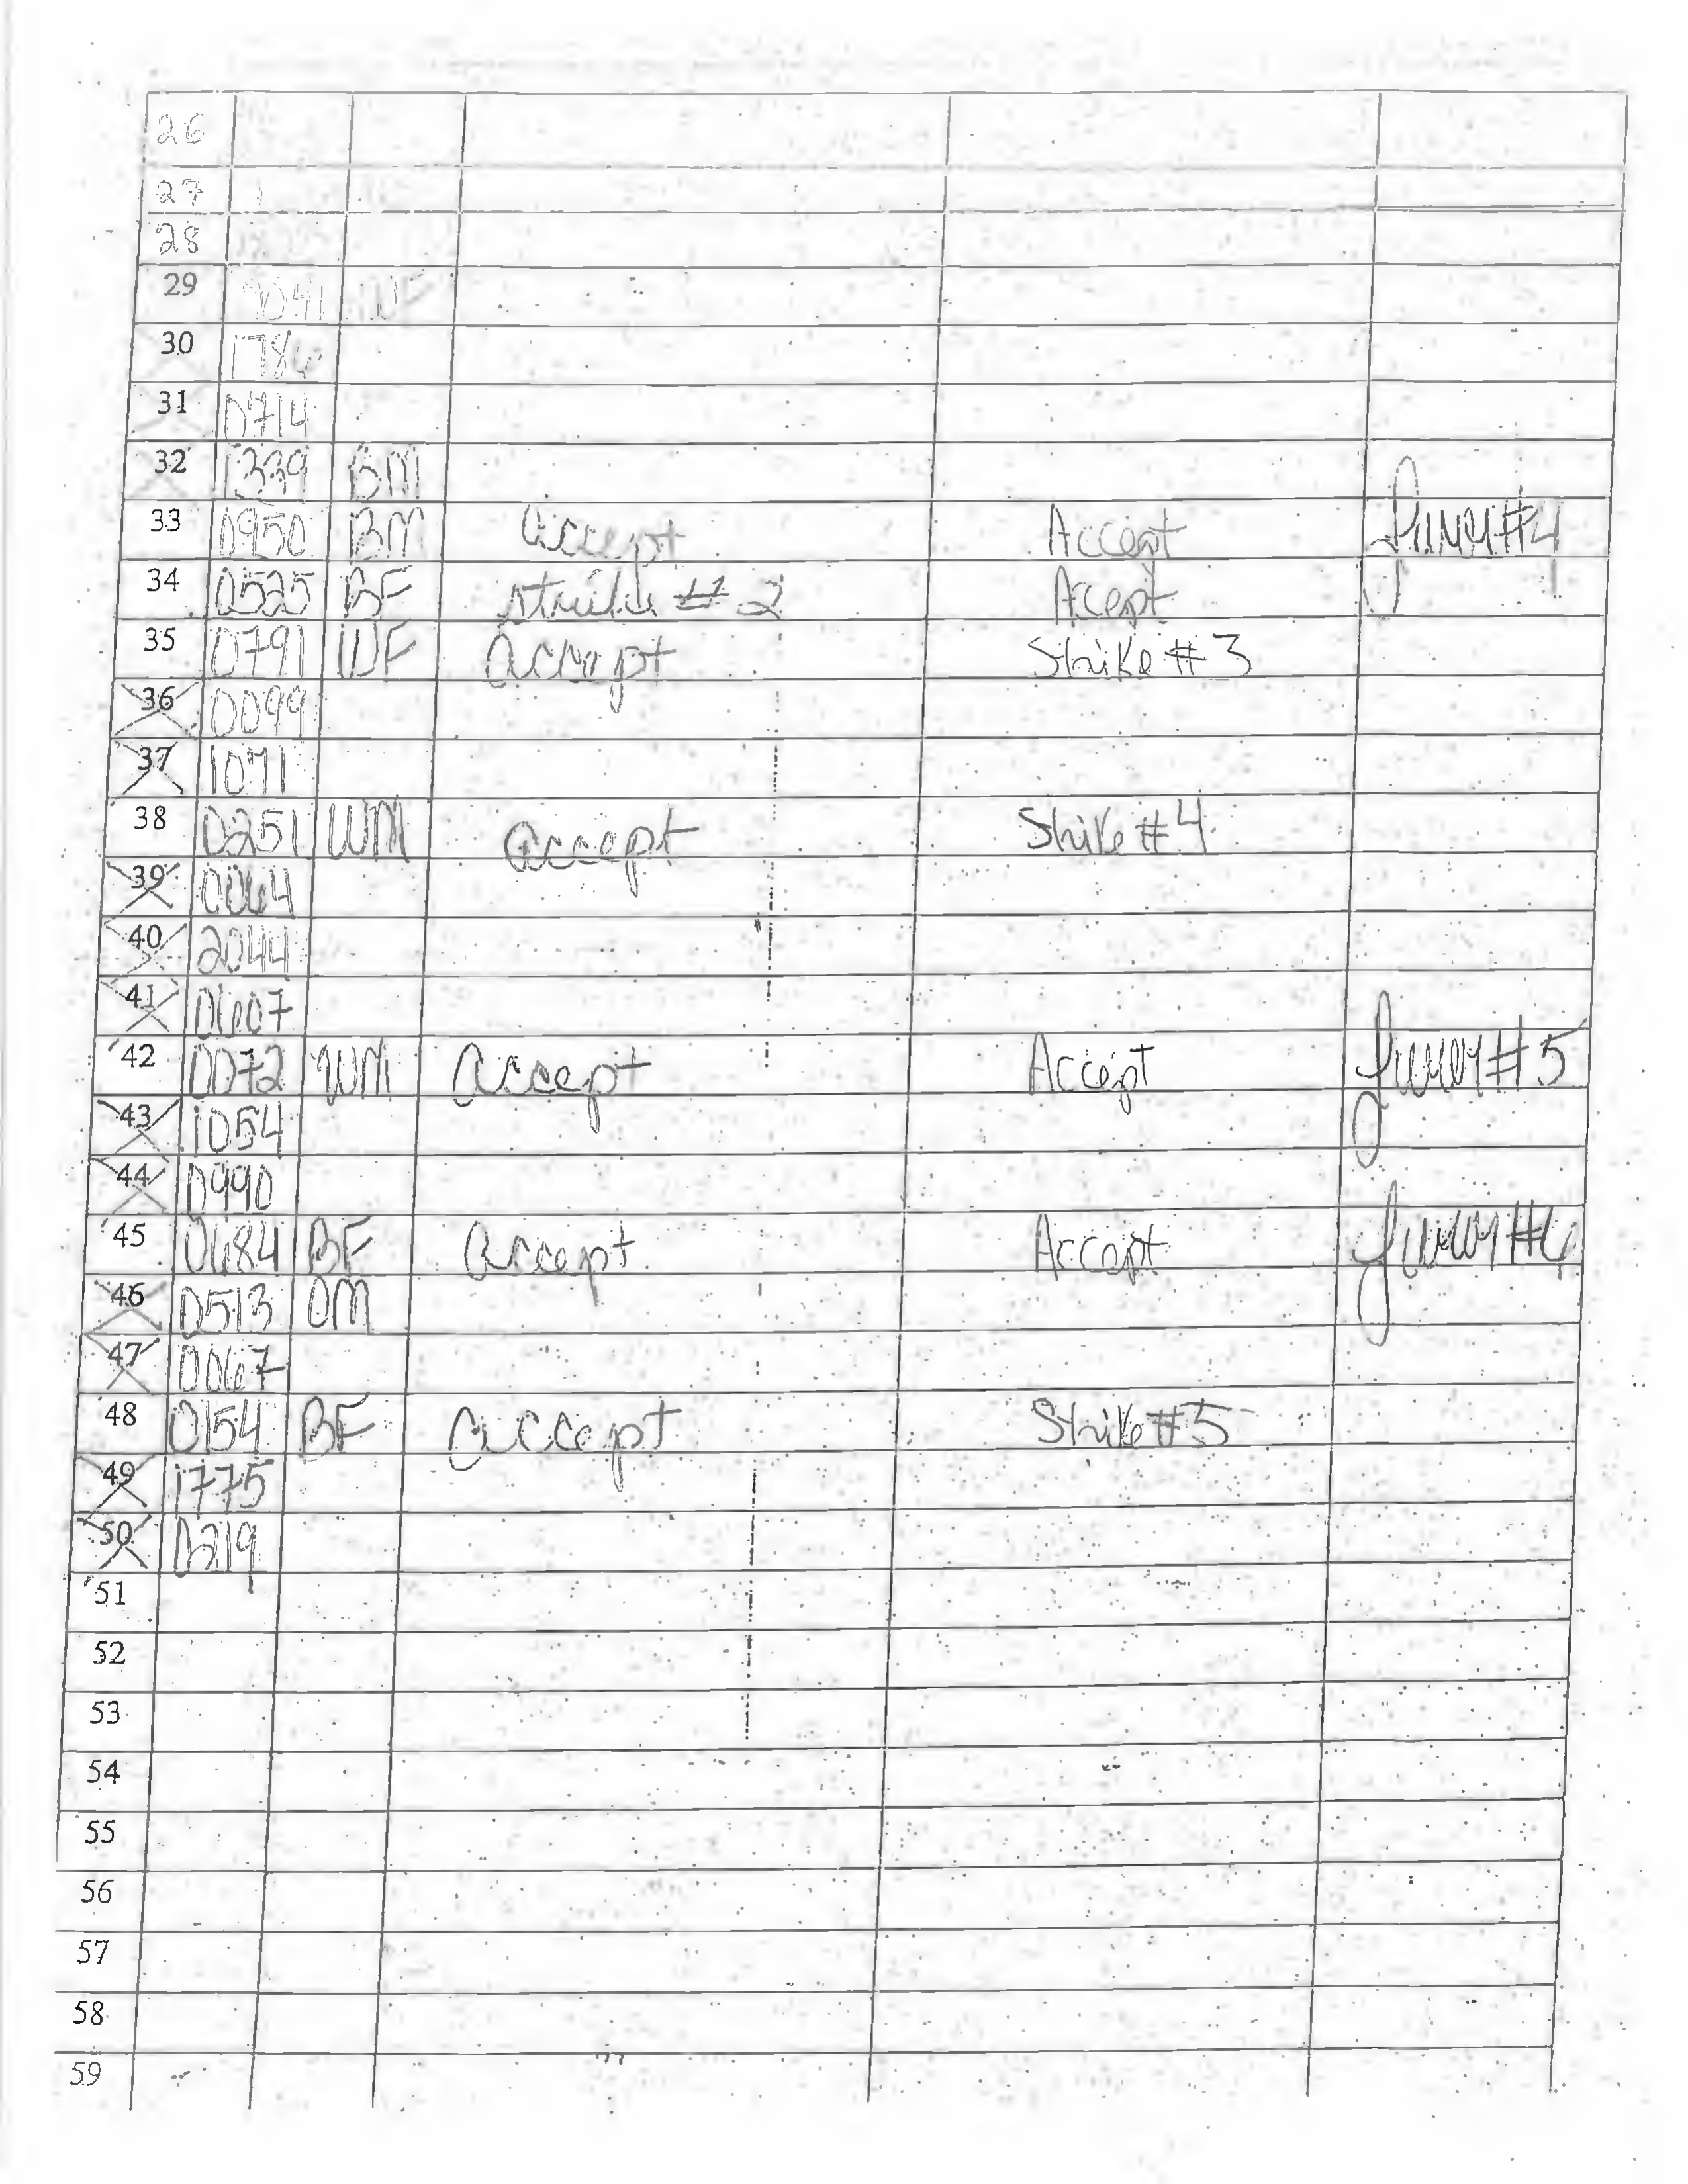 26
27
28
29 9041 WF
30 1784
31 0714
32 1339 BM
33 0950 BM accept Accept Juror #4
34 0525 BF strike #2 Accept
35 0791 WF accept Strike #3
36 0099
37 1071
38 0251 WM accept Strike #4
39 0064
40 2044
41 0607
42 0072 WM accept Accept Juror #5
43 1054
44 0990
45 0684 BF accept Accept Juror #6
46 0513 OM
47 0067
48 0154 BF accept Strike #5
49 1775
50 0219
51
52
53
54
55
56
57
58
59